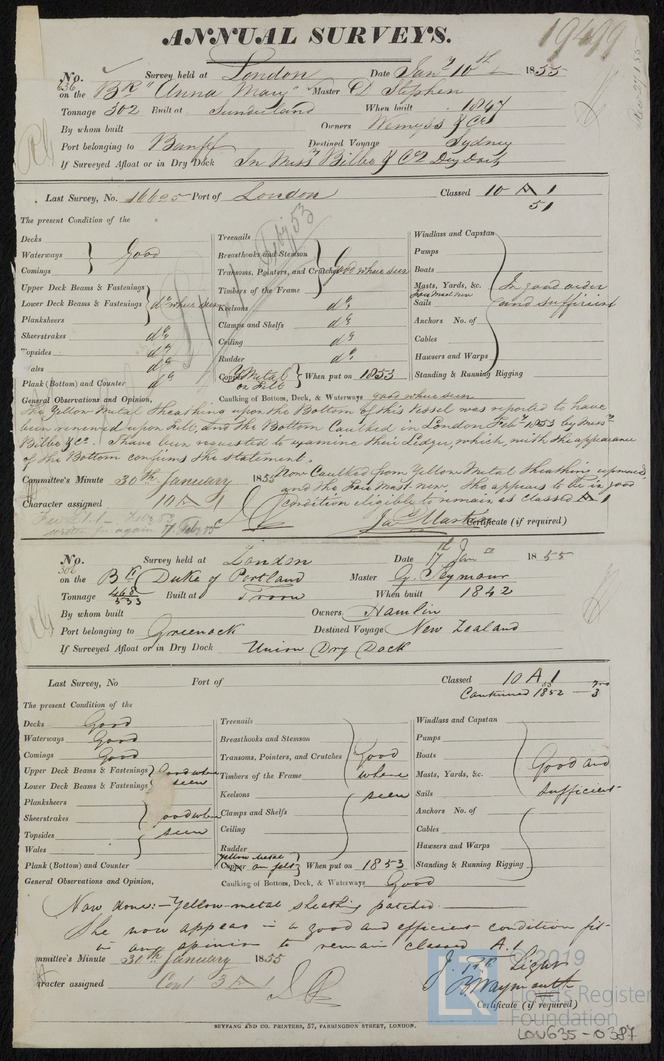 ANNUAL SURVEYS.
19499
No. 636 Survey held at London Date Jany 10th 1855
on the BK "Anna Mary" Master D Stephen
Tonnage 302 Built at Sunderland When built 1847
By whom built Owners Wemyss & Co
Port belonging to Banff Destined Voyage Sydney
If Surveyed Afloat or in Dry Dock In Messrs Bilbe & Cos Dry Dock
Last Survey, No. 16605 Port of London Classed 10 A 1
51
The present Condition of the
Decks
Waterways
Comings
Good
Upper Deck Beams & Fastenings
Lower Deck Beams & Fastenings
Planksheers
do where seen
Sheerstrakes do
Topsides do
Wales do
Plank (Bottom) and Counter do
Treenails
Breasthooks and Stemson
Transoms, Pointers, and Crutches
Timbers of the Frame
Good where seen
Keelsons do
Clamps and Shelfs do
Ceiling do
Rudder do
Copper Y Metal on Felt When put on 1853
Windlass and Capstan
Pumps
Boats
Masts, Yards, &c.
Fore Mast new
Sails
Anchors No. of
Cables
Hawsers and Warps
Standing & Running Rigging
In good order and sufficient
General Observations and Opinion, Caulking of Bottom, Deck, & Waterways good where seen
The Yellow Metal Sheathing upon the Bottom of this Vessel was reported to have
been renewed upon Felt, and the Bottom Caulked in London Feby 1853 by Messrs
Bilbe & Co. I have been requested to examine their Ledger, which, with the appearance
of the Bottom confirms the statement.
Now Caulked from Yellow Metal Sheathing upwards
and the Fore Mast New. She appears to be in good
condition eligible to remain as Classed A 1
Committee's Minute 30th January 1855
Character assigned 10 A 1
Jas Martin
Certificate (if required)
No. 306 Survey held at London Date 17th Jany 1855
on the Bk Duke of Portland Master G. Seymour
Tonnage 468/533 Built at Troon When built 1842
By whom built Owners Hamlin
Port belonging to Greenock Destined Voyage New Zealand
If Surveyed Afloat or in Dry Dock Union Dry Dock
Last Survey, No Port of Classed 10 A 1
Continued 1852 — 3
The present Condition of the
Decks Good
Waterways Good
Comings Good
Upper Deck Beams & Fastenings
Lower Deck Beams & Fastenings
Good where seen
Planksheers
Sheerstrakes
Topsides
Wales
good where seen
Plank (Bottom) and Counter
Treenails
Breasthooks and Stemson
Transoms, Pointers, and Crutches
Timbers of the Frame
Keelsons
Clamps and Shelfs
Ceiling
Rudder
Good where seen
Copper Yellow Metal on felt When put on 1853
Windlass and Capstan
Pumps
Boats
Masts, Yards, &c.
Sails
Anchors No. of
Cables
Hawsers and Warps
Standing & Running Rigging
Good and sufficient
General Observations and Opinion, Caulking of Bottom, Deck, & Waterways Good
Now done:—Yellow metal sheathg patched.
She now appears in a good and efficient condition fit
in my opinion to remain classed A.1
Committee's Minute 31st January 1855
Character assigned Cont 3 A 1
B Waymouth
Certificate (if required)
SEYFANG AND CO. PRINTERS, 57, FARRINGDON STREET, LONDON.
LR
© 2019
Lloyd's Register
Foundation
LON635-0387